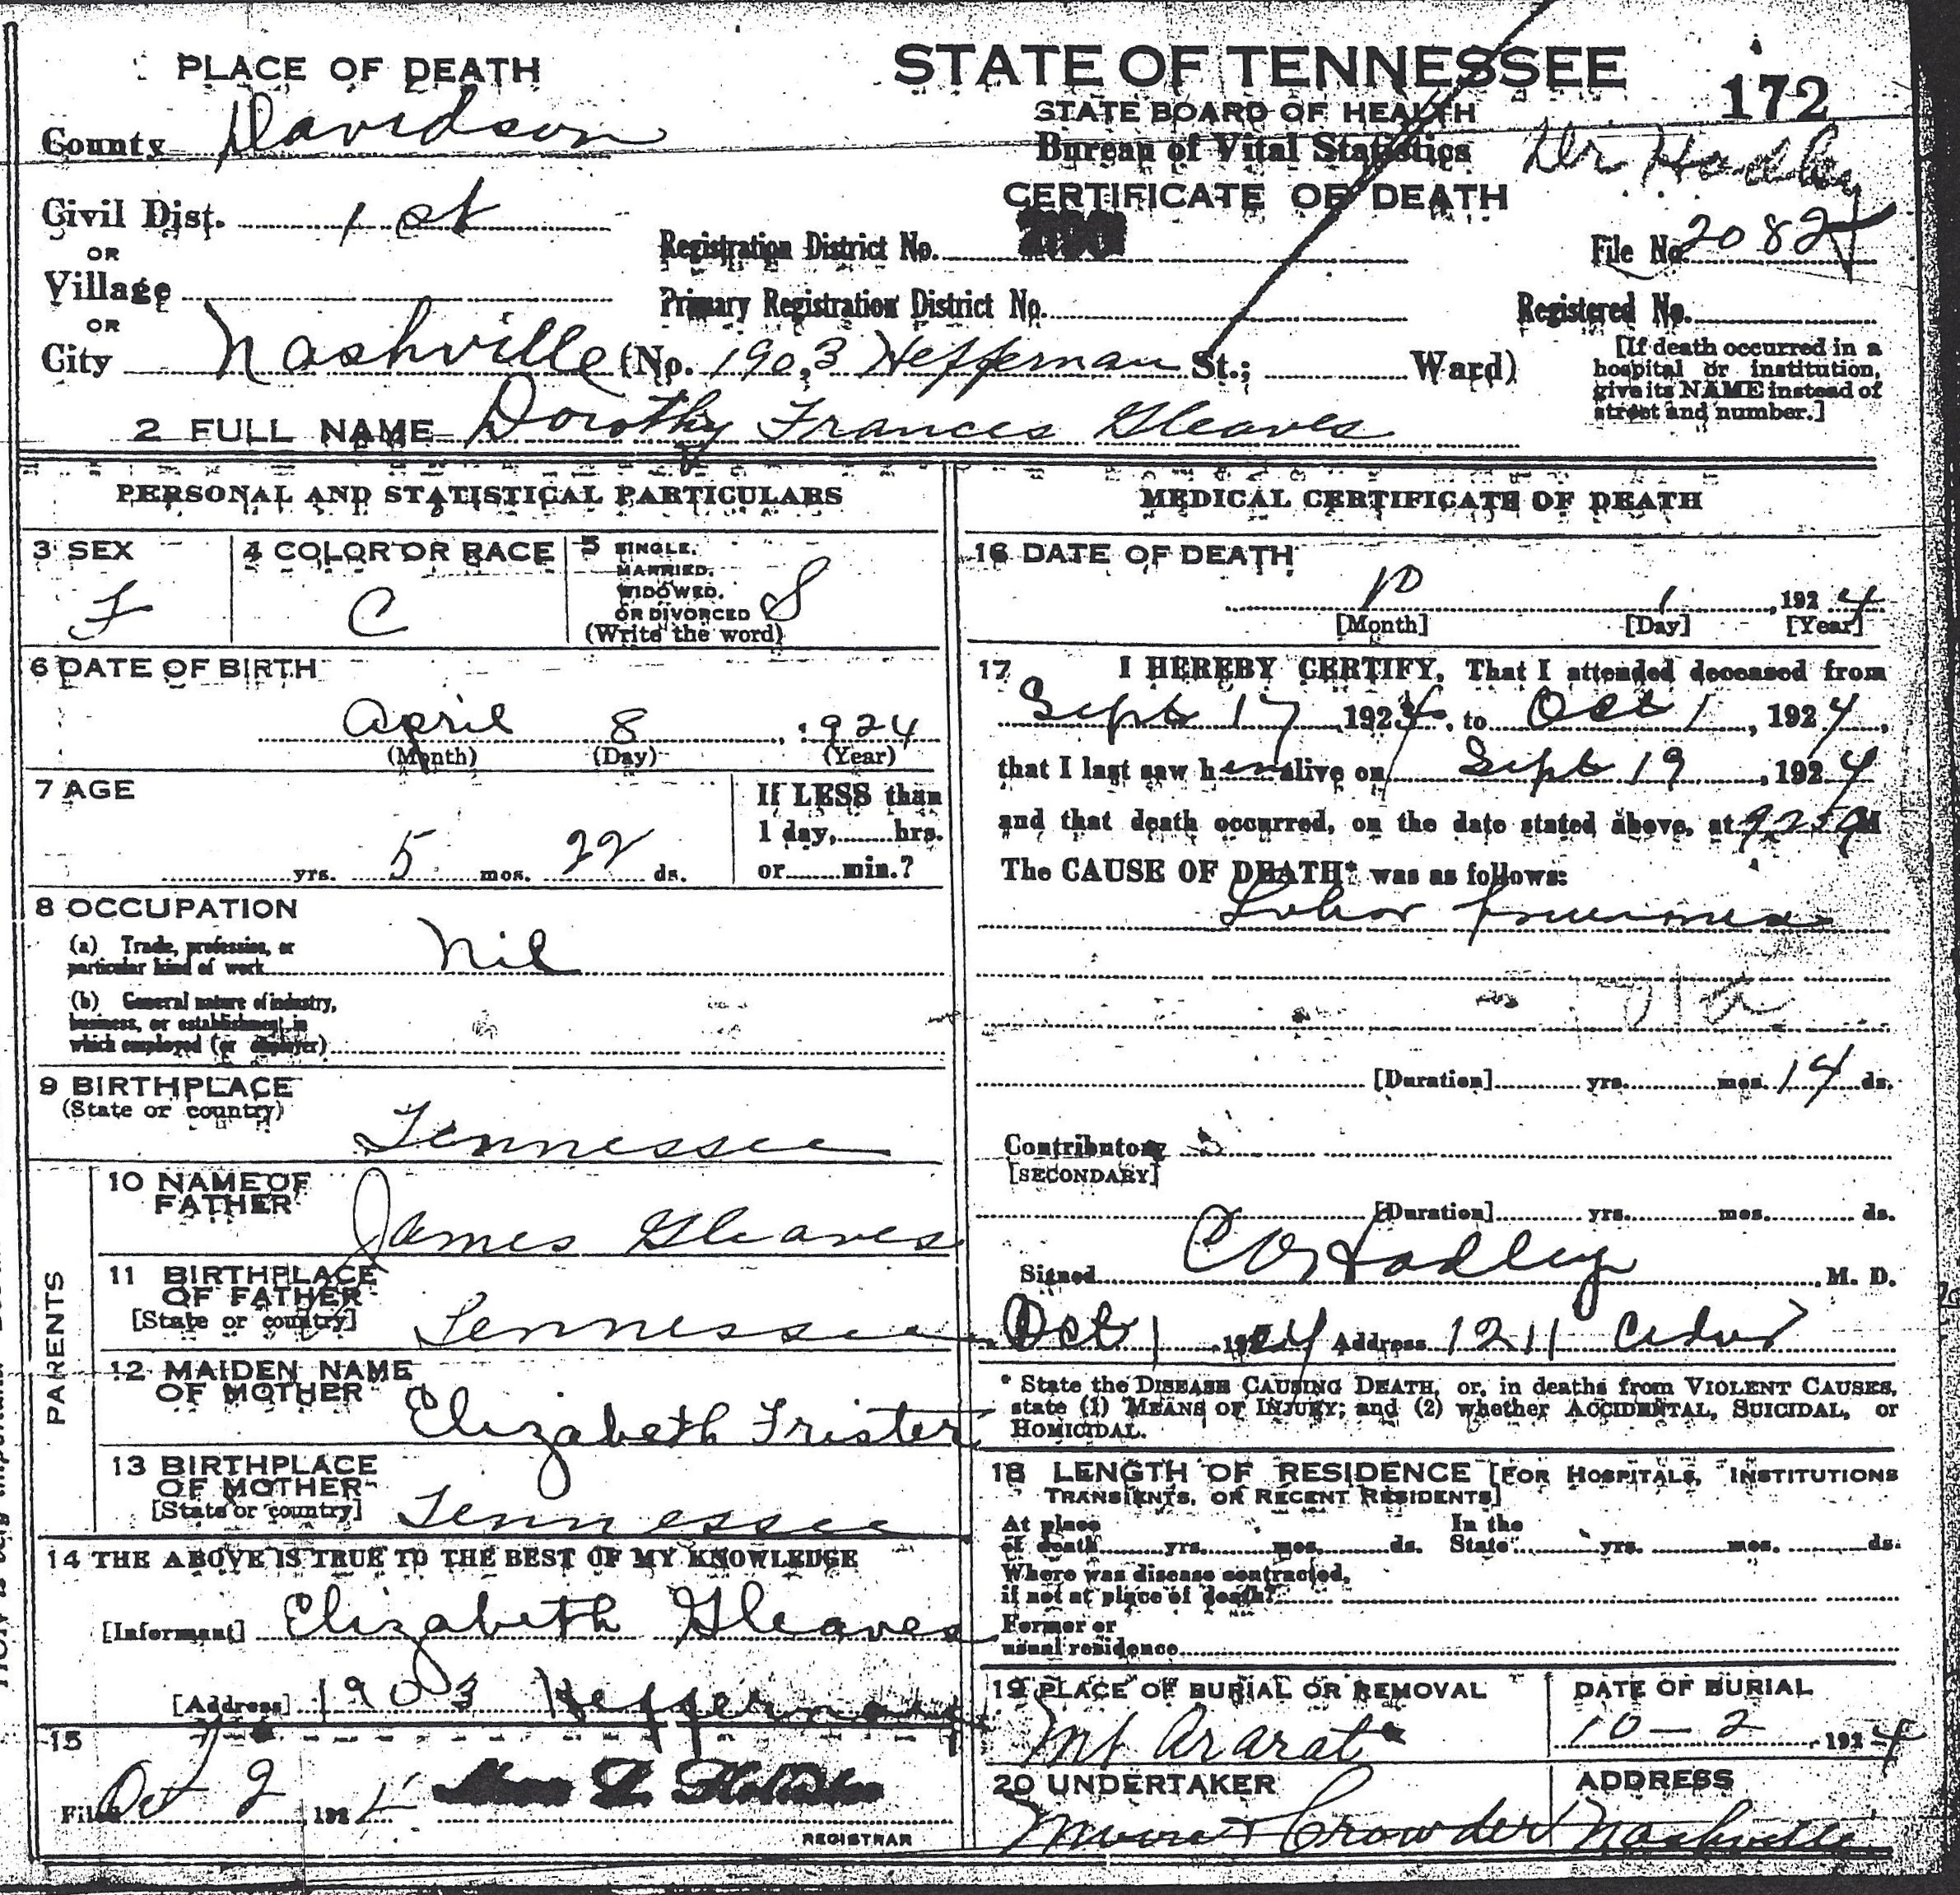 PLACE OF DEATH
County Davidson
Civil Dist. 1 st
OR
Village
OR
City Nashville (No. 1903 Heffernan St.; Ward)
STATE OF TENNESSEE
STATE BOARD OF HEALTH
Bureau of Vital Statistics
CERTIFICATE OF DEATH
172
Dr Hadley
Registration District No.
File No 2082
Primary Registration District No.
Registered No.
[If death occurred in a
hospital or institution,
give its NAME instead of
street and number.]
2 FULL NAME Dorothy Frances Gleaves
PERSONAL AND STATISTICAL PARTICULARS
3 SEX
F
4 COLOR OR RACE
C
5 SINGLE,
MARRIED,
WIDOWED,
OR DIVORCED S
(Write the word)
6 DATE OF BIRTH
April 8, 1924
(Month) (Day) (Year)
7 AGE
yrs. 5 mos. 22 ds.
If LESS than
1 day, hrs.
or min.?
8 OCCUPATION
(a) Trade, profession, or
particular kind of work Nil
(b) General nature of industry,
business, or establishment in
which employed (or employer)
9 BIRTHPLACE
(State or country)
Tennessee
PARENTS
10 NAME OF
FATHER
James Gleaves
11 BIRTHPLACE
OF FATHER
[State or country] Tennessee
12 MAIDEN NAME
OF MOTHER
Elizabeth Frister
13 BIRTHPLACE
OF MOTHER
[State or country] Tennessee
14 THE ABOVE IS TRUE TO THE BEST OF MY KNOWLEDGE
[Informant] Elizabeth Gleaves
[Address] 1903 Heffernan
15
Filed Oct 2, 192
REGISTRAR
MEDICAL CERTIFICATE OF DEATH
16 DATE OF DEATH
10 1, 1924
[Month] [Day] [Year]
17 I HEREBY CERTIFY, That I attended deceased from
Sept 17 1924, to Oct 1, 1924,
that I last saw her alive on Sept 19, 1924
and that death occurred, on the date stated above, at 9 25 A M
The CAUSE OF DEATH* was as follows:
Lobar pneumonia
[Duration] yrs. mos. 14 ds.
Contributory
[SECONDARY]
[Duration] yrs. mos. ds.
Signed C O Hadley M. D.
Oct 1, 1924 Address 1211 Cedar
* State the DISEASE CAUSING DEATH, or, in deaths from VIOLENT CAUSES,
state (1) MEANS OF INJURY; and (2) whether ACCIDENTAL, SUICIDAL, or
HOMICIDAL.
18 LENGTH OF RESIDENCE [FOR HOSPITALS, INSTITUTIONS
TRANSIENTS, OR RECENT RESIDENTS]
At place
of death yrs. mos. ds.
In the
State yrs. mos. ds.
Where was disease contracted,
if not at place of death?
Former or
usual residence
19 PLACE OF BURIAL OR REMOVAL
Mt Ararat
DATE OF BURIAL
10-2, 1924
20 UNDERTAKER
Crowder
ADDRESS
Nashville